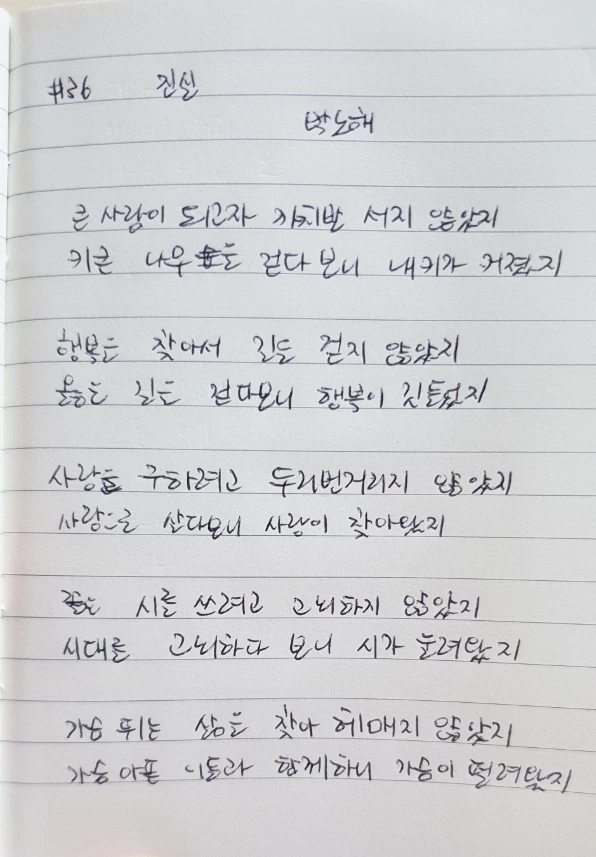 #36 진실
박노해
큰 사람이 되고자 까치발 서지 않았지
키큰 나무숲을 걷다보니 내키가 커졌지
행복을 찾아서 길을 걷지 않았지
옳은 길을 걷다보니 행복이 깃들었지
사랑을 구하려고 두리번거리지 않았지
사랑으로 살다보니 사랑이 찾아왔지
좋은 시를 쓰려고 고뇌하지 않았지
시대를 고뇌하다 보니 시가 울려왔지
가슴 뛰는 삶을 찾아 헤매지 않았지
가슴 아픈 이들과 함께하니 가슴이 떨려왔지